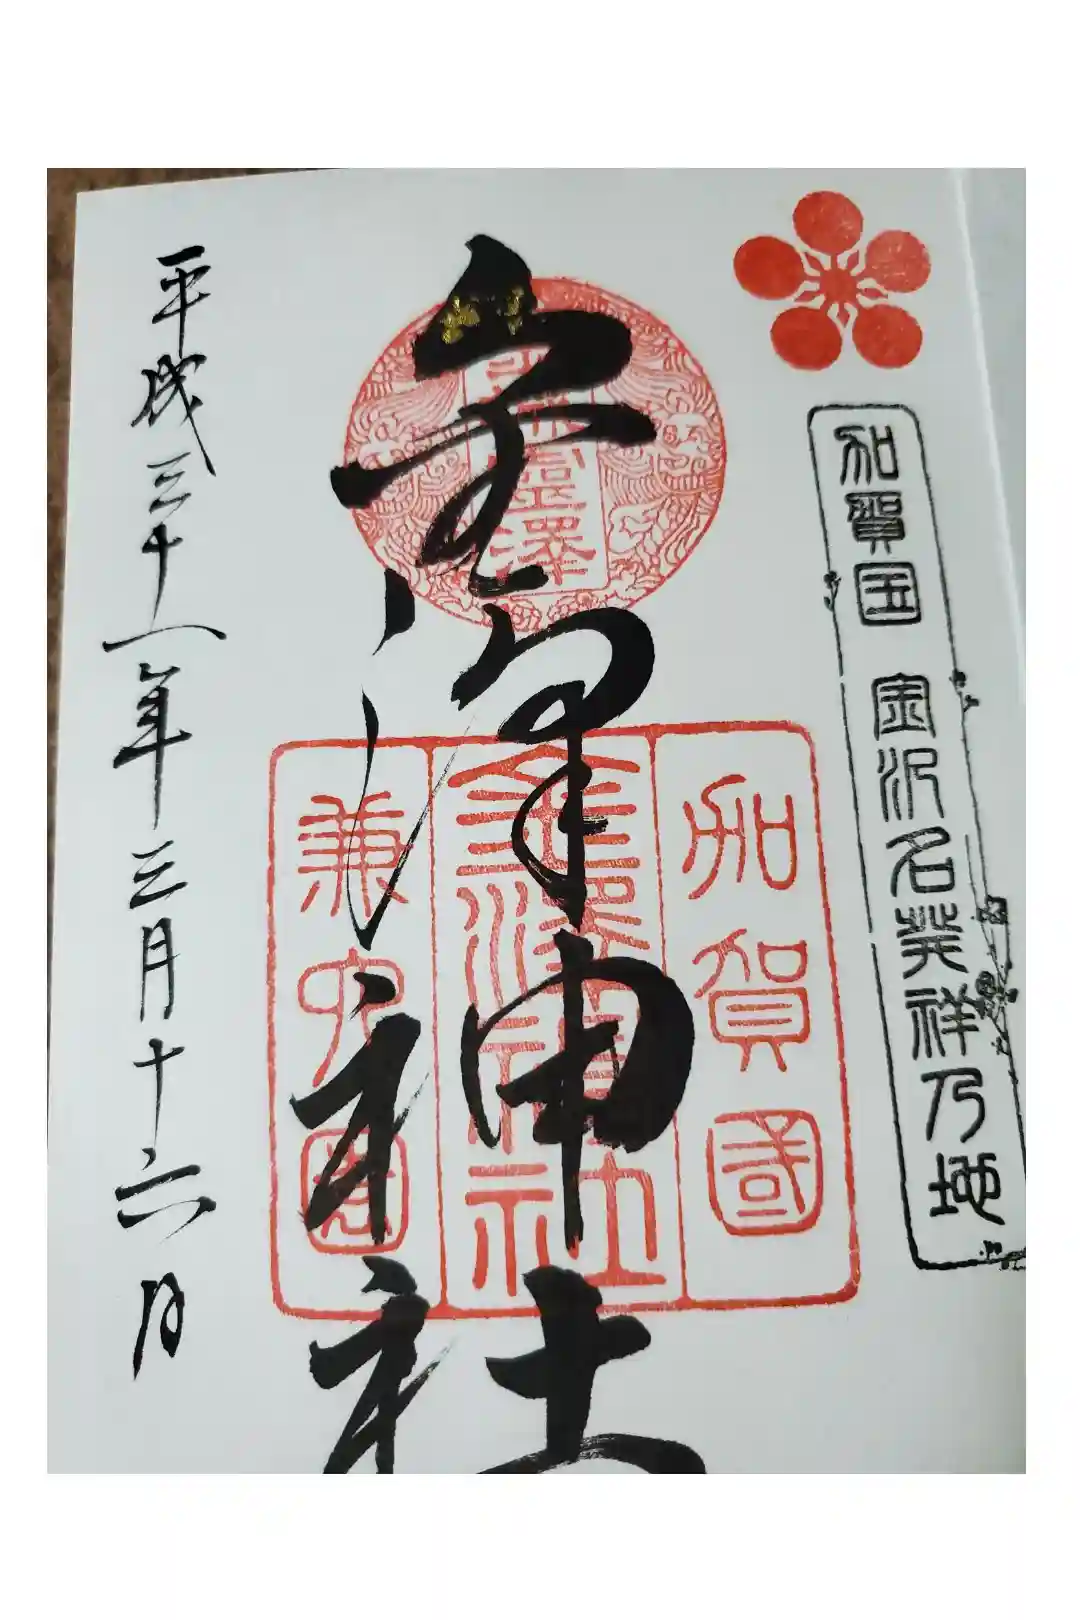 加賀国 金沢名発祥乃地
金澤神社
加賀國
金澤神社
兼六園
金城霊澤
平成三十一年三月十六日